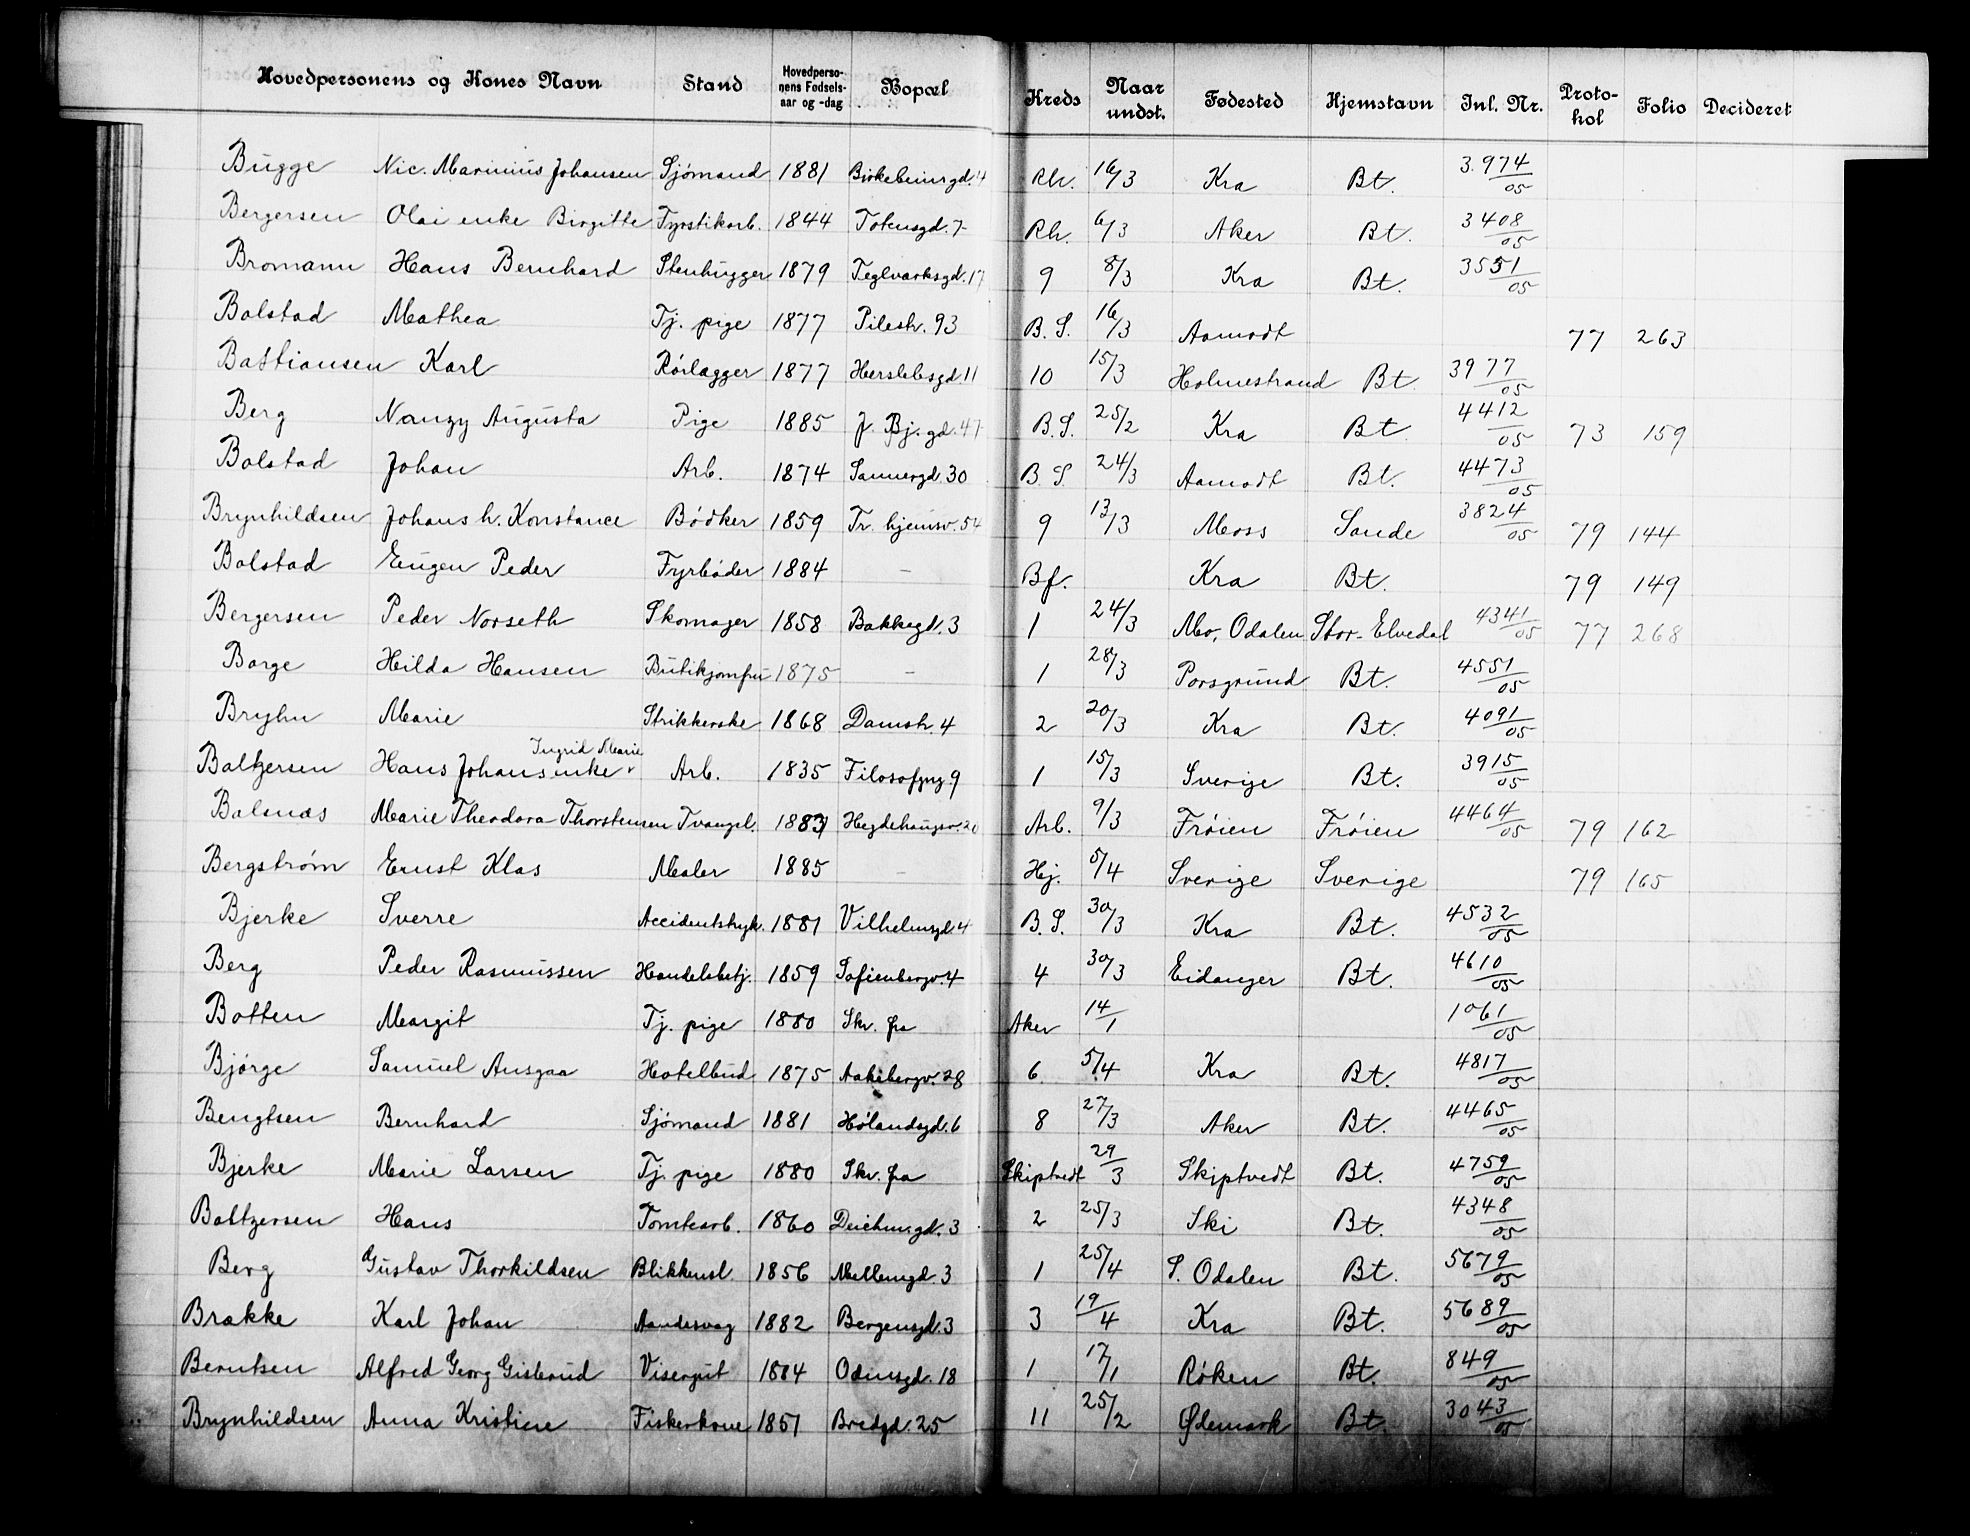 Hovedpersonens og Kones Navn Stand Hovedpersonens Fødselsaar og -dag Bopæl Kreds Naar undst. Fødested Hjemstavn Inl. Nr. Protokol Folio Decideret
Bugge Nic. Marinius Johansen Sjømand 1881 Birkebeinrgd. 4 Rh. 16/3 Kra Bt. 3974/05
Bergersen Olai enke Birgitte Fyrstikarb. 1844 Totensgd. 7 Rh. 6/3 Aker Bt. 3408/05
Bromann Hans Bernhard Stenhugger 1879 Teglværksgd. 17 9 8/3 Kra Bt. 3551/05
Bolstad Mathea Tj. pige 1877 Pilestr. 93 B. S. 16/3 Aamodt 77 263
Bastiansen Karl Rørlægger 1877 Herslebsgd 11 10 15/3 Holmestrand Bt. 3977/05
Berg Nanzy Augusta Pige 1885 J. Bj. gd. 47 B. S. 25/2 Kra Bt. 4412/05 73 159
Bolstad Johan Arb. 1874 Sannergd. 30 B. S. 24/3 Aamodt Bt. 4473/05
Brynhildsen Johans h. Konstance Bødker 1859 Tr. hjemsv. 54 9 13/3 Moss Sande 3824/05 79 144
Bolstad Eugen Peder Fyrbøder 1884 – Bf. Kra Bt. 79 149
Bergersen Peder Norseth Skomager 1858 Bakkegd. 3 1 24/3 Mo, Odalen Stor-Elvedal 4341/05 77 268
Borge Hilda Hansen Butikjomfru 1875 – 1 28/3 Porsgrund Bt. 4551/05
Bryhn Marie Strikkerske 1868 Damstr. 4 2 20/3 Kra Bt. 4091/05
Baltzersen Hans Johans enke Ingrid Marie Arb. 1835 Filosofgng 9 1 15/3 Sverige Bt. 3915/05
Balsnæs Marie Theodora Thorstensen Tvangsl. 1883 Hegdehaugsv. 20 Arb. 9/3 Frøien Frøien 4464/05 79 162
Bergstrøm Ernst Klas Maler 1885 – Hj. 5/4 Sverige Sverige 79 165
Bjerke Sverre Accidentstryk. 1881 Vilhelmsgd. 4 B. S. 30/3 Kra Bt. 4532/05
Berg Peder Rasmussen Handelsbetj. 1859 Sofienbergv. 4 4 30/3 Eidanger Bt. 4610/05
Botten Margit Tj. pige 1880 Skr. fra Aker 14/1 1061/05
Bjørge Samuel Ansgar Hotelbud 1875 Aakebergv. 28 6 5/4 Kra Bt. 4817/05
Bengtsen Bernhard Sjømand 1881 Hølandsgd. 6 8 27/3 Aker Bt. 4465/05
Bjerke Marie Larsen Tj. pige 1880 Skr. fra Skiptvedt 29/3 Skiptvedt Bt. 4759/05
Baltzersen Hans Tomtearb. 1860 Deichm. gd. 3 2 25/3 Ski Bt. 4348/05
Berg Gustav Thorkildsen Blikkensl. 1856 Mellemgd. 3 1 25/4 S. Odalen Bt. 5679/05
Brække Karl Johan 1882 Bergensgd. 3 3 19/4 Kra Bt. 5689/05
Berntsen Alfred Georg Gisterud Visergut 1884 Odinsgd. 18 1 17/1 Røken Bt. 849/05
Brynhildsen Anna Kristine Fiskerkone 1851 Bredgd. 25 11 25/2 Ødemark Bt. 3043/05